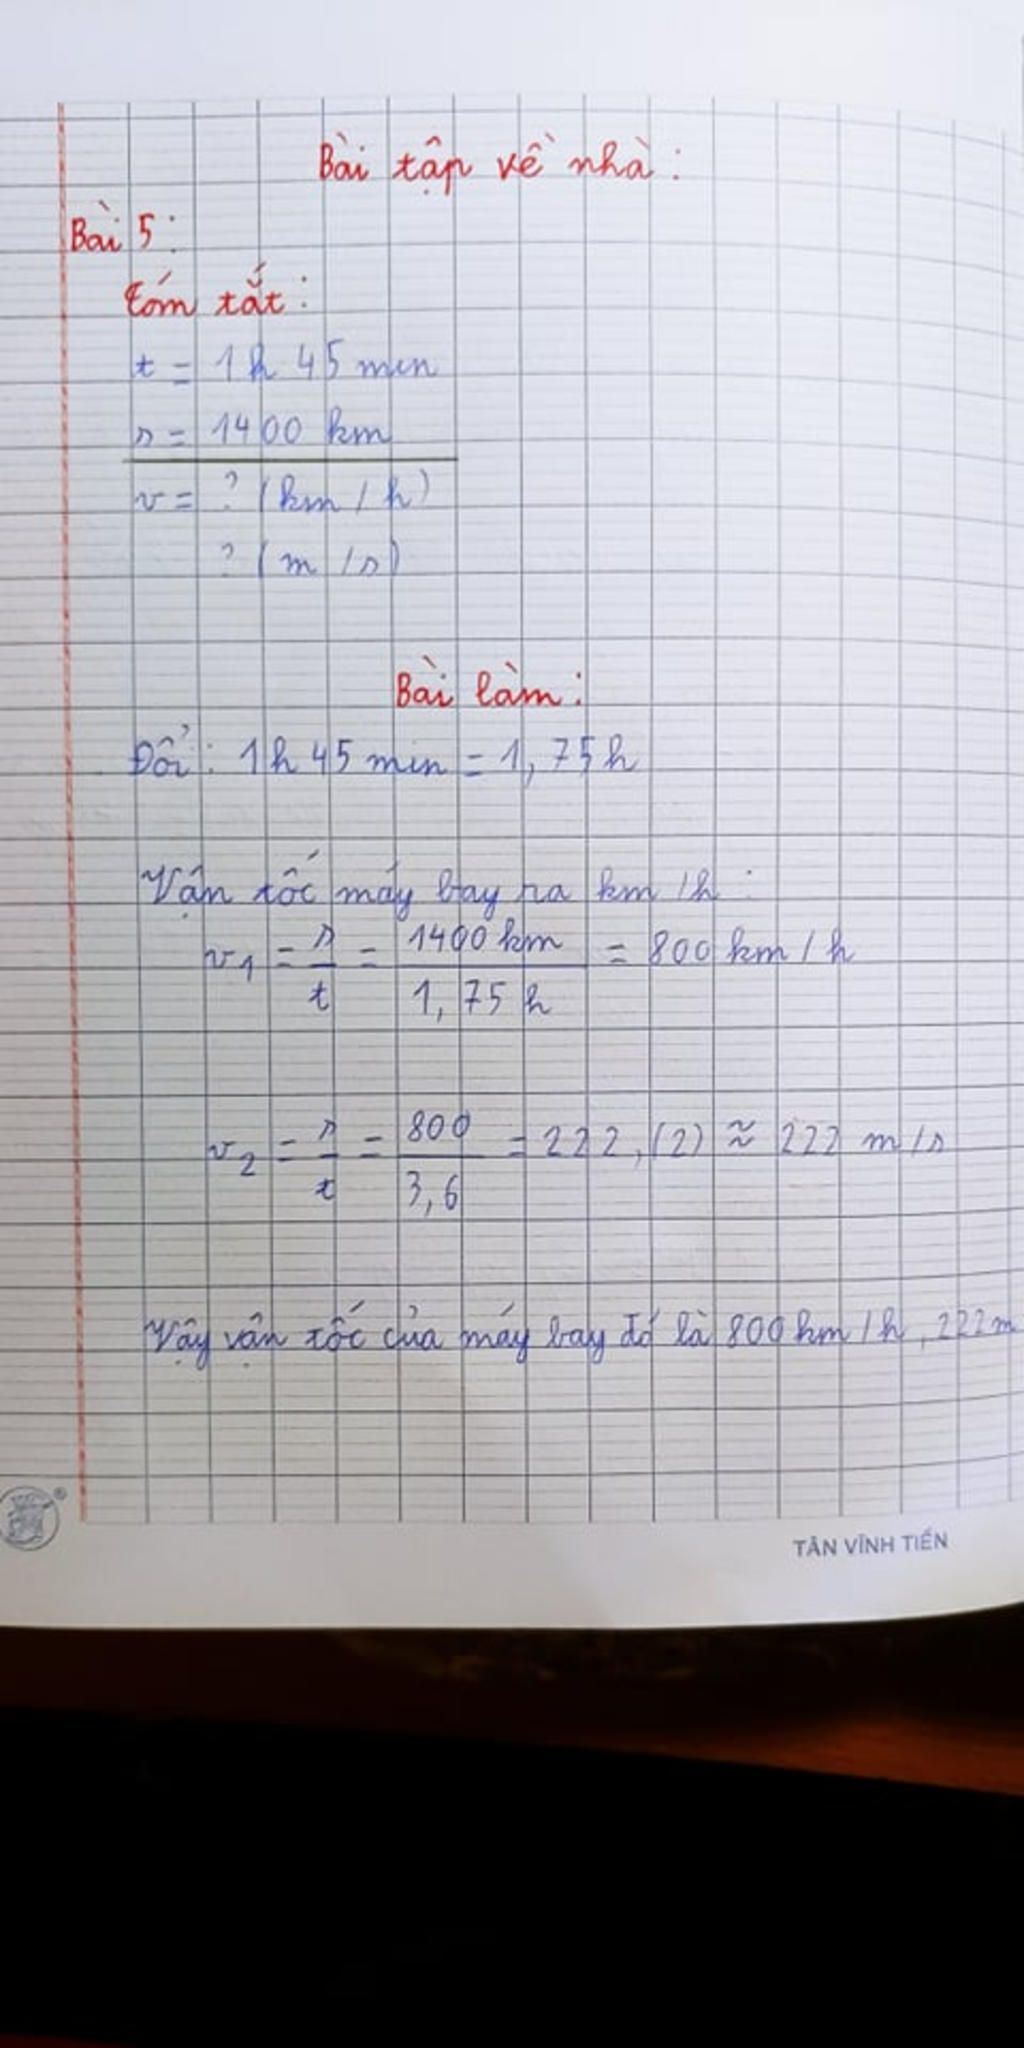 Bài tập về nhà :
Bài 5 :
Tóm tắt :
t = 1h 45 min
s = 1400 km
v = ? (km/h)
? (m/s)
Bài làm :
Đổi : 1h 45 min = 1,75h
Vận tốc máy bay ra km/h :
v1 = s/t = 1400 km/1,75 h = 800 km/h
v2 = s/t = 800/3,6 = 222,(2) ≈ 222 m/s
Vậy vận tốc của máy bay đó là 800 km/h, 222 m
TÂN VĨNH TIẾN